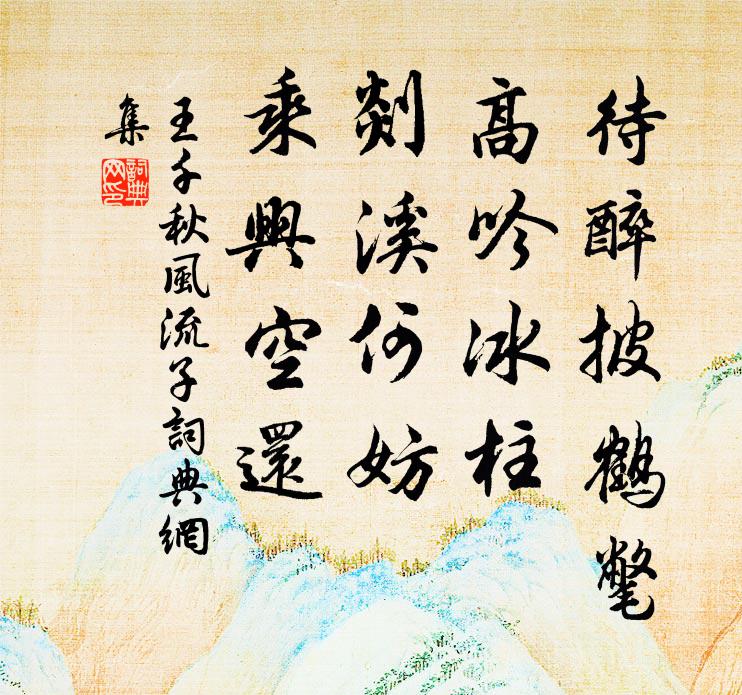 待醉披鶴氅
高吟冰柱
剡溪何妨
乘興空還
王千秋風流子詞典網
集
詞典網印